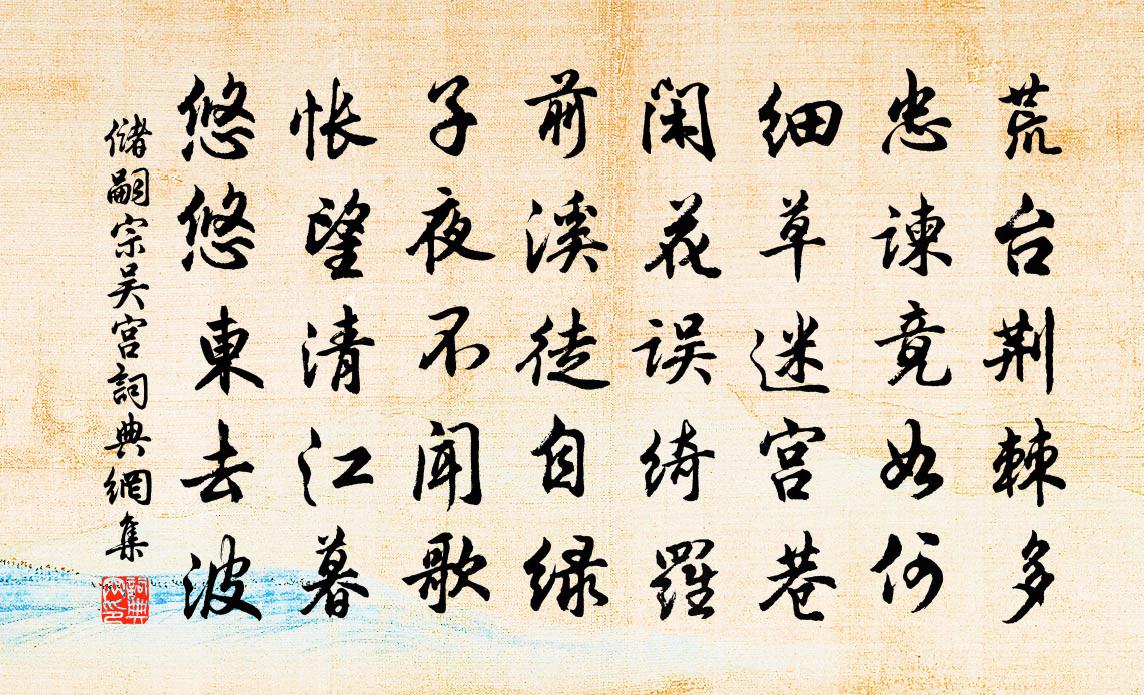 荒台荆棘多
忠谏竟如何
细草迷宫巷
闲花误绮罗
前溪徒自绿
子夜不闻歌
怅望清江暮
悠悠東去波
储嗣宗吴宫詞典網集